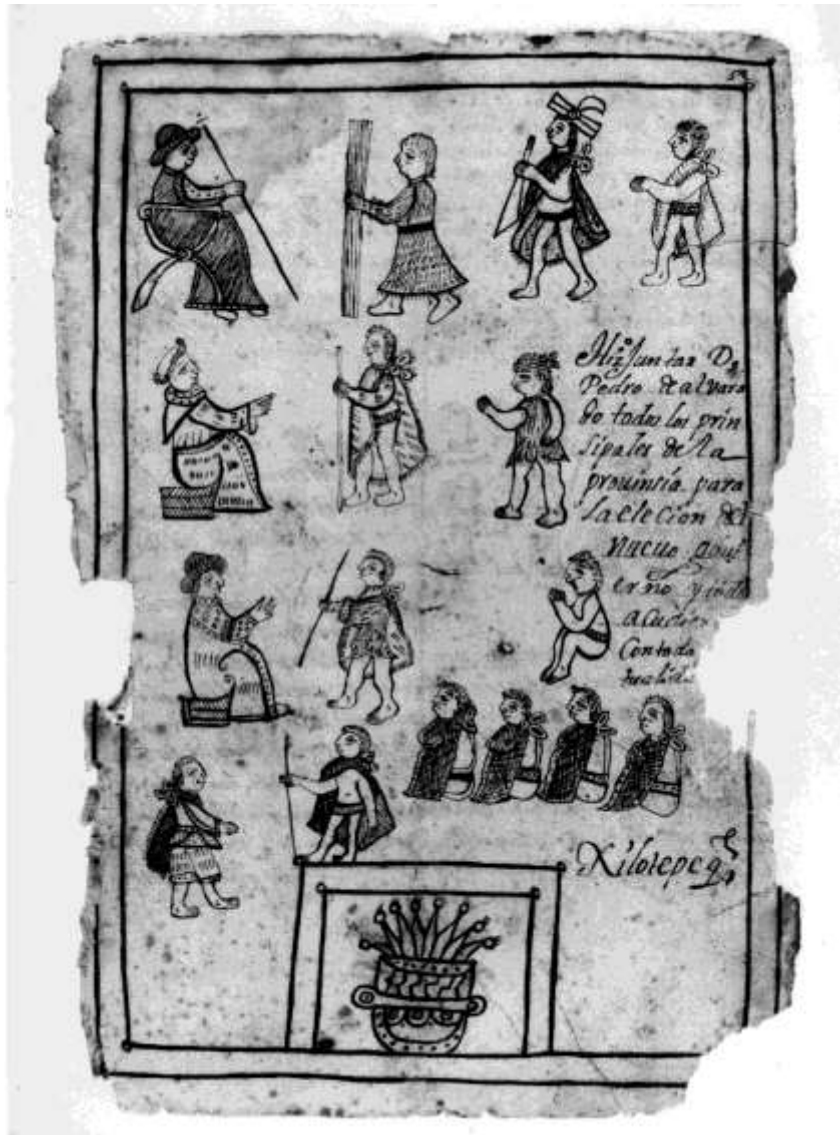 Hizo Juntar Dō
Pedro de alvara
do todos los prin
sipales de la
prouinsia para
la elecion del
nueuo gou
erno y
acudie
Con toda
Xilotepeq̄